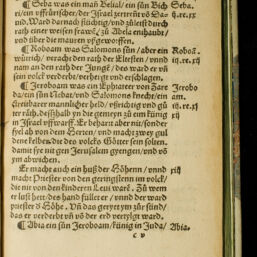 ¶ Seba was ein mañ Belial/ ein sůn Bich Seba.
ri/ ein vffrürischer/ der Israel zertrent võ Da ij.re.xx
uid. Ward darnach flüchtig/ vnd zůletst durch
rath einer weisen frawẽ/ zů Abela enthaubt/
vnd über die mauren vßgeworffen.
¶ Roboam was Salomons sůn/ aber ein Roboã.
wüterich/ veracht den rath der Eltesten/ vnnd iij.re.xij
nam an den rath der Jungẽ/ des ward er vñ
sein volck verderbt/ verhergt und erschlagen.
¶ Jeroboam was ein Ephrateer von Zare Jerobo
da/ ein sůn Nebat/ vnd Salomons knecht/ ein am.
streitbarer mannlicher held/ vßrichtig vnd gů iij.re.xj
ter räth. deßhalb yn die gemeyn zů eim künig iij.re.xij
in Israel vffwarff. Er beharrt aber nit/ sonder
fyel ab von dem Herren/ vnd macht zwey gul
dene kelber/ die des volcks Götter sein solten.
damit sye nit gen Jerusalem gyengen/ vnd võ
ym abwichen.
Er macht auch ein huß der Höhenn / vnnd xiij
macht Priester von den geringstenn im volck/
die nit von den kinderen Leui warẽ. Zů wem
er lust hett/ des hand füllet er / vnnd der ward
priester d̾ Höhe. Vñ das geryet ym zůr sünd/
das er verderbt vñ võ der erd vertylgt ward.
¶ Abia ein sůn Jeroboam/ künig in Juda/ Abia.
c v